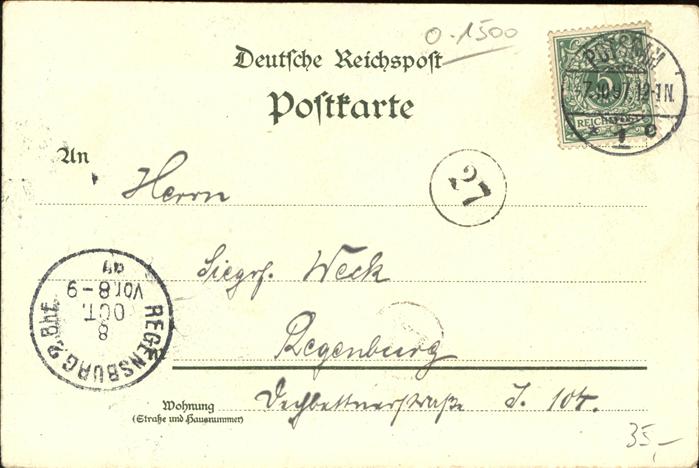 0.1500
Deutsche Reichspost
Postkarte
POTSDAM
7.10.97.12-1N.
* 1 c
5
REICHSPOST
An
Herrn
27
Siegf. Weck
Regenburg
REGENSBURG 2 Bhf.
8
OCT.
Vor.8-9
97
Wohnung
(Straße und Hausnummer)
Dechbettnerstraße J. 104.
35,-